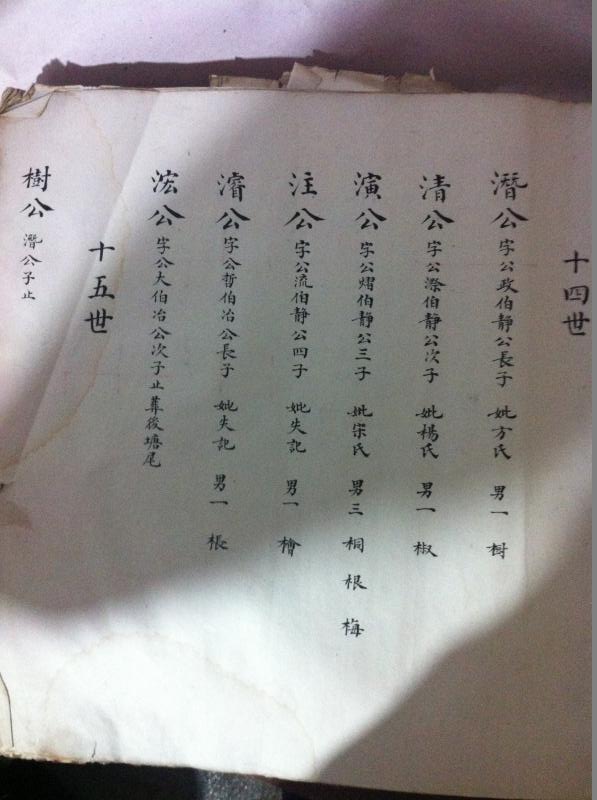 十四世
潛公 字公政伯靜公長子 妣方氏 男一 樹
清公 字公滌伯靜公次子 妣楊氏 男一 椒
演公 字公熠伯靜公三子 妣宗氏 男三 桐 根 梅
注公 字公流伯靜公四子 妣失記 男一 檜
濬公 字公哲伯冶公長子 妣失記 男一 棖
浤公 字公大伯冶公次子止葬後塘尾
十五世
樹公 潛公子止